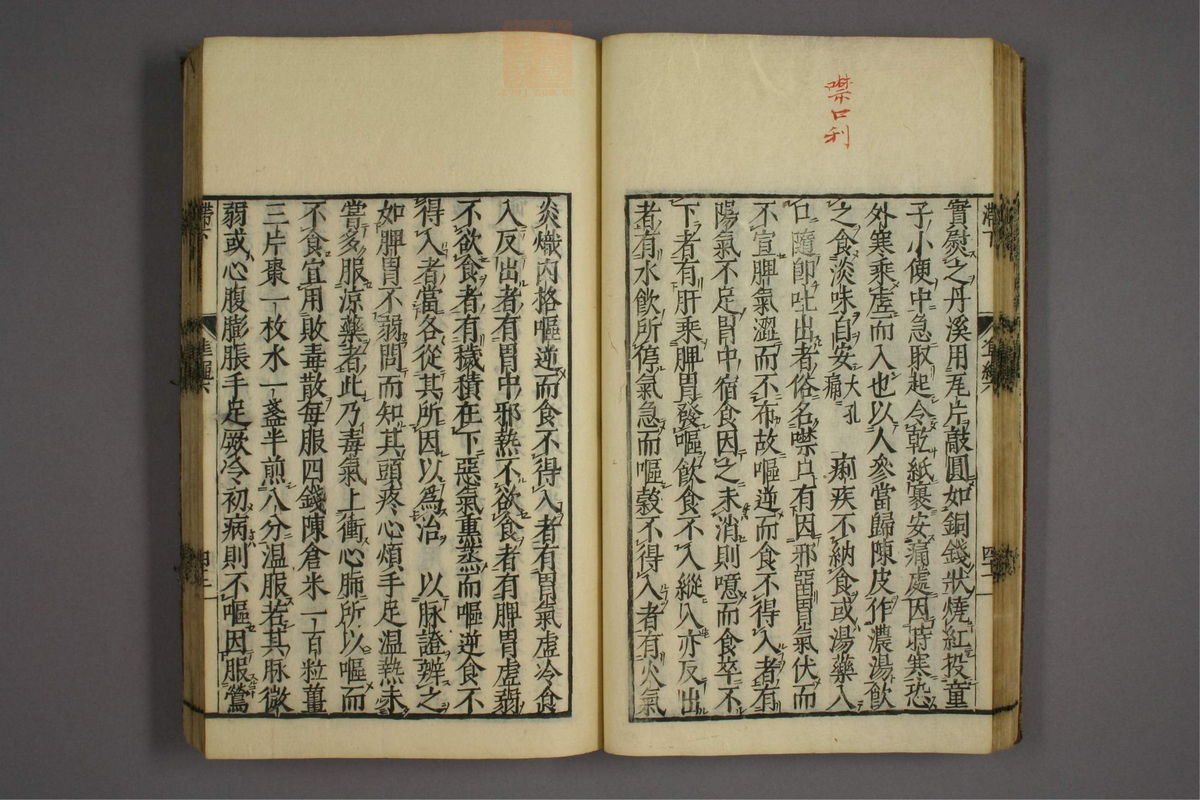 噤口利
實熨之丹溪用瓦片敲圓如銅錢狀燒紅投童
子小便中急取起令乾紙裹安痛處因時寒恐
外寒乘虛而入也以人參當歸陳皮作濃湯飲
之食淡味自安 大孔痛 痢疾不納食或湯藥入
口隨卽吐出者俗名噤口有因邪留胃氣伏而
不宣脾氣澀而不布故嘔逆而食不得入者有
陽氣不足胃中宿食因之未消則噫而食卒不
下者有肝乘脾胃發嘔飲食不入縱入亦反出
者有水飲所停氣急而嘔穀不得入者有火氣
炎熾內格嘔逆而食不得入者有胃氣虛冷食
入反出者有胃中邪熱不欲食者有脾胃虛弱
不欲食者有穢積在下惡氣熏蒸而嘔逆食不
得入者當各從其所因以爲治 以脉證辨之
如脾胃不弱問而知其頭疼心煩手足溫熱未
嘗多服凉藥者此乃毒氣上衝心肺所以嘔而
不食宜用敗毒散每服四錢陳倉米一百粒薑
三片棗一枚水一盞半煎八分溫服若其脉微
弱或心腹膨脹手足厥冷初病則不嘔因服鶯
滯下
準繩六
四十二